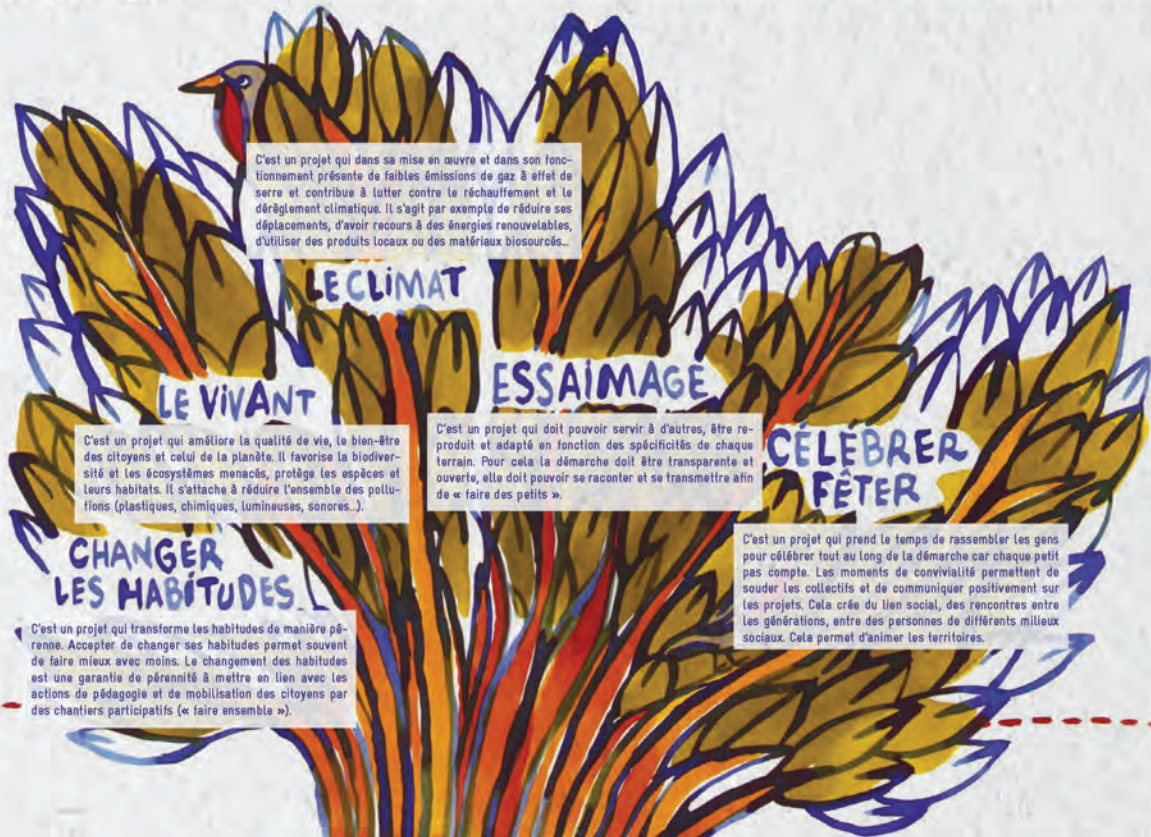 C'est un projet qui dans sa mise en œuvre et dans son fonc-
tionnement présente de faibles émissions de gaz à effet de
serre et contribue à lutter contre le réchauffement et le
dérèglement climatique. Il s'agit par exemple de réduire ses
déplacements, d'avoir recours à des énergies renouvelables,
d'utiliser des produits locaux ou des matériaux biosourcés...
LE CLIMAT
LE VIVANT
C'est un projet qui améliore la qualité de vie, le bien-être
des citoyens et celui de la planète. Il favorise la biodiver-
sité et les écosystèmes menacés, protège les espèces et
leurs habitats. Il s'attache à réduire l'ensemble des pollu-
tions (plastiques, chimiques, lumineuses, sonores...).
ESSAIMAGE
C'est un projet qui doit pouvoir servir à d'autres, être re-
produit et adapté en fonction des spécificités de chaque
terrain. Pour cela la démarche doit être transparente et
ouverte, elle doit pouvoir se raconter et se transmettre afin
de « faire des petits ».
CÉLÉBRER
FÊTER
C'est un projet qui prend le temps de rassembler les gens
pour célébrer tout au long de la démarche car chaque petit
pas compte. Les moments de convivialité permettent de
souder les collectifs et de communiquer positivement sur
les projets. Cela crée du lien social, des rencontres entre
les générations, entre des personnes de différents milieux
sociaux. Cela permet d'animer les territoires.
CHANGER
LES HABITUDES
C'est un projet qui transforme les habitudes de manière pé-
renne. Accepter de changer ses habitudes permet souvent
de faire mieux avec moins. Le changement des habitudes
est une garantie de pérennité à mettre en lien avec les
actions de pédagogie et de mobilisation des citoyens par
des chantiers participatifs (« faire ensemble »).